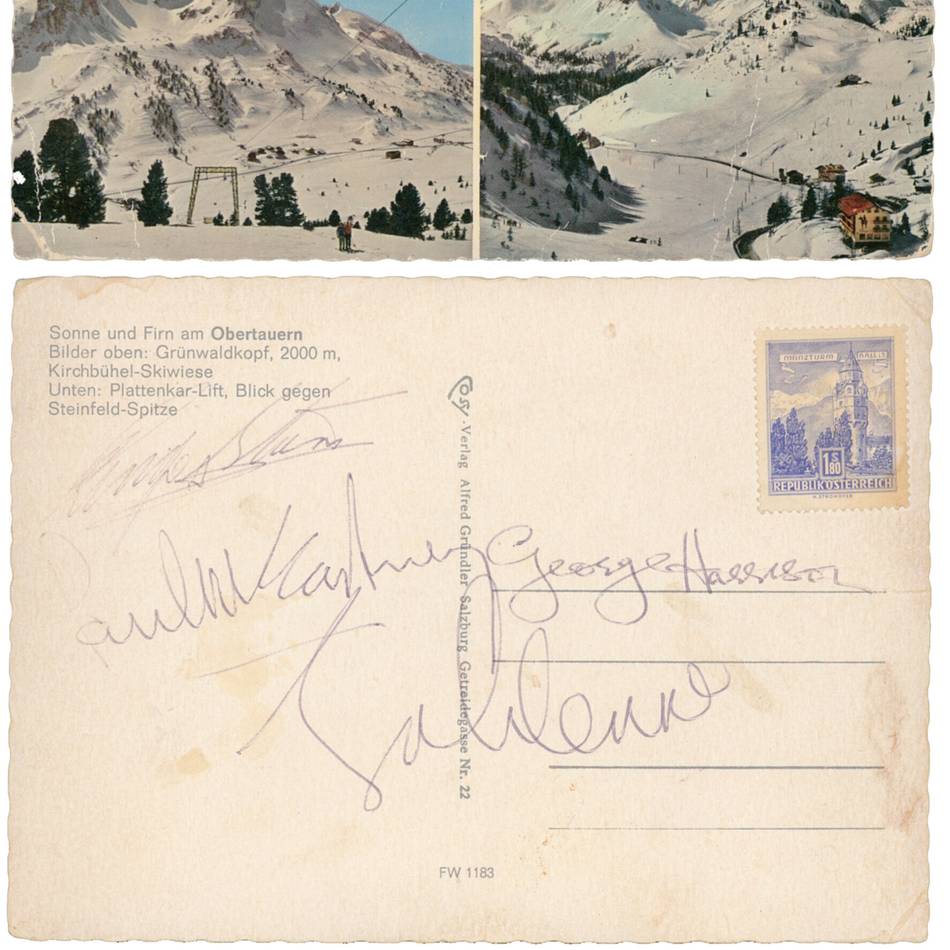 Sonne und Firn am Obertauern
Bilder oben: Grünwaldkopf, 2000 m,
Kirchbühel-Skiwiese
Unten: Plattenkar-Lift, Blick gegen
Steinfeld-Spitze
Cosy-Verlag Alfred Gründler Salzburg Getreidegasse Nr. 22
MÜNZTURM HALL i.T.
1 S 80
REPUBLIK ÖSTERREICH
Paul McCartney
George Harrison
FW 1183